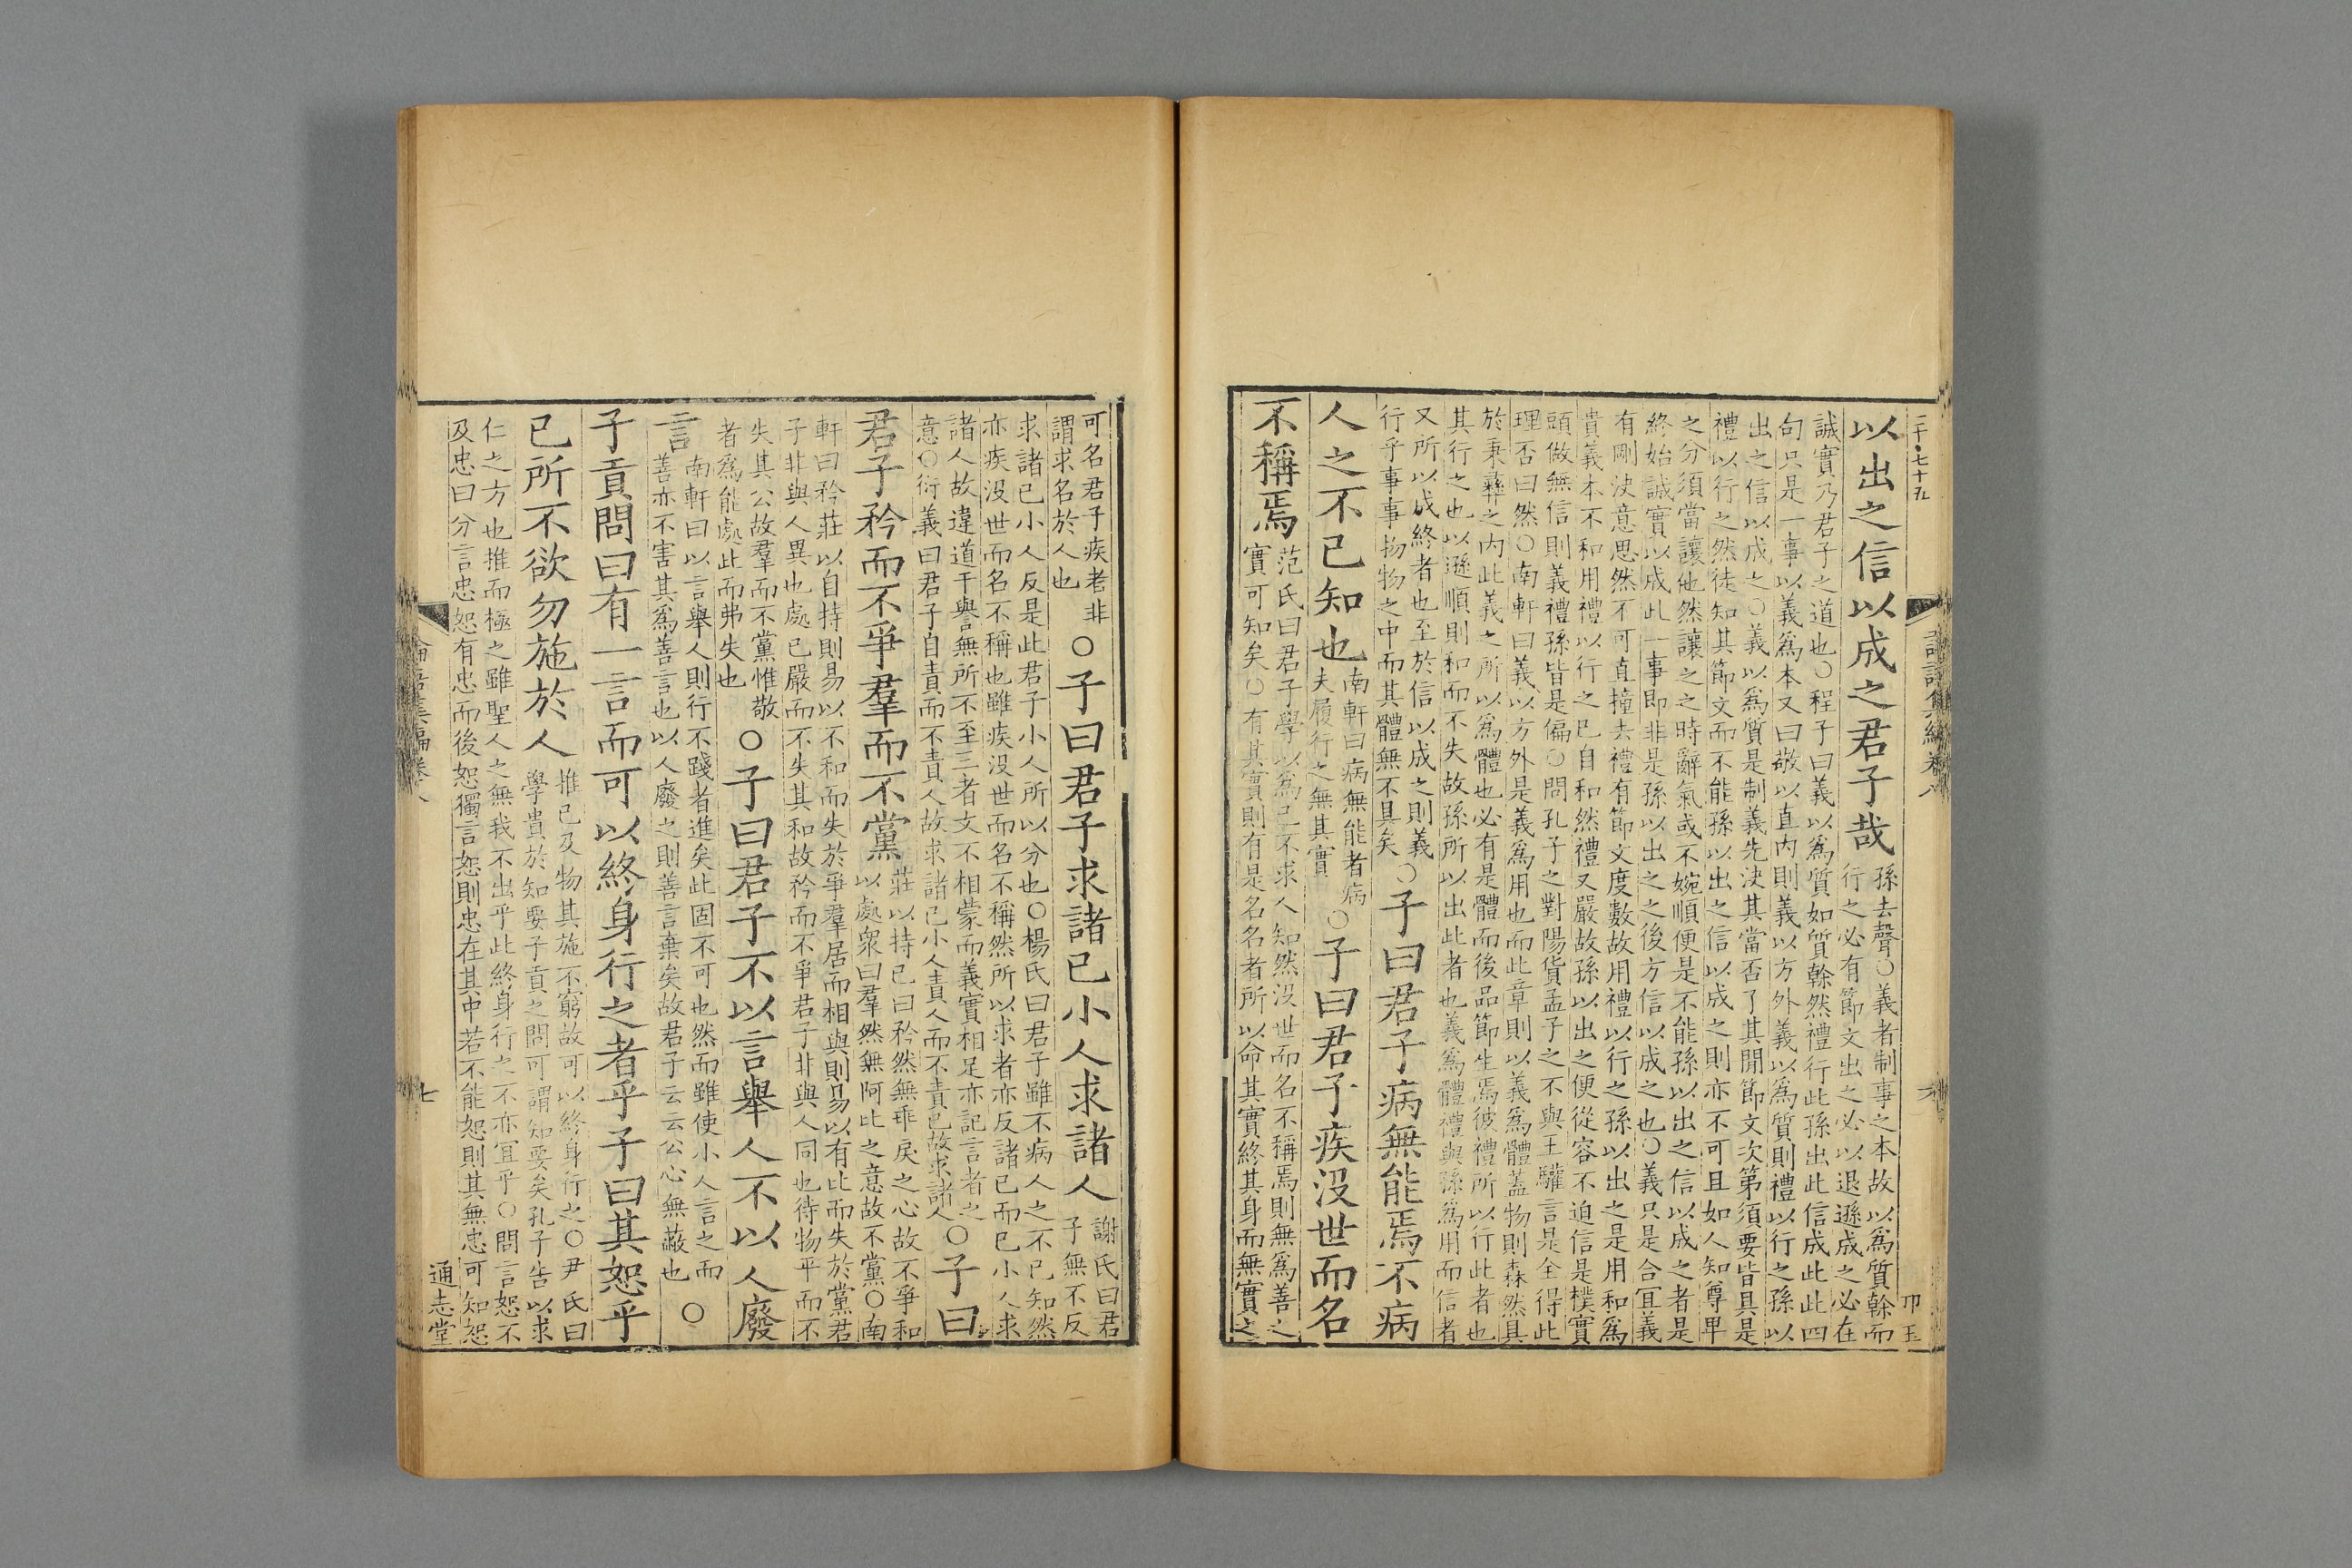 二千·七十五
以出之信以成之君子哉
孫去聲○義者制事之本故以爲質榦而
行之必有節文出之必以退遜成之必在
誠實乃君子之道也○程子曰義以爲質如質榦然禮行此孫出此信成此此四
句只是一事以義爲本又曰敬以直內則義以方外義以爲質則禮以行之孫以
出之信以成之○義以爲質是制義先決其當否了其閒節文次第須要皆具是
禮以行之然徒知其節文而不能孫以出之信以成之則亦不可且如人知尊卑
之分須當讓他然讓之之時辭氣或不婉順便是不能孫以出之信以成之者是
終始誠實以成此一事即非是孫以出之之後方信以成之也○義只是合冝義
有剛決意思然不可直撞去禮有節文度數故用禮以行之孫以出之是用和爲
貴義本不和用禮以行之已自和然禮又嚴故孫以出之使從容不迫信是樸實
頭做無信則義禮孫皆是偏○問孔子之對陽貨孟子之不與王驩言是全得此
理否曰然○南軒曰義以方外是義爲用也而此章則以義爲體蓋物則森然具
於秉彝之內此義之所以爲體也必有是體而後品節生焉彼禮所以行此者也
其行之也以遜順則和而不失故孫所以出此者也義爲體禮與孫爲用而信者
又所以成終者也至於信以成之則義
行乎事事物物之中而其體無不具矣
○子曰君子病無能焉不病
人之不已知也
南軒曰病無能者病
夫履行之無其實
○子曰君子疾沒世而名
不稱焉
范氏曰君子學以爲己不求人知然沒世而名不稱焉則無爲善之
實可知矣○有其實則有是名名者所以命其實終其身而無實之
可名君子疾者非
謂求名於人也
○子曰君子求諸已小人求諸人
謝氏曰君
子無不反
求諸己小人反是此君子小人所以分也○楊氏曰君子雖不病人之不已知然
亦疾沒世而名不稱也雖疾沒世而名不稱然所以求者亦反諸已而已小人求
諸人故違道干譽無所不至三者文不相蒙而義實相足亦記言者之
意○衍義曰君子自責而不責人故求諸己小人責人而不責己故求諸人
○子曰
君子矜而不爭羣而不黨
莊以持已曰矜然無乖戾之心故不爭和
以處衆曰羣然無阿比之意故不黨○南
軒曰矜莊以自持則易以不和而失於爭羣居而相與則易以有比而失於黨君
子非與人異也處已嚴而不失其和故矜而不爭君子非與人同也待物平而不
失其公故羣而不黨惟敬
者爲能處此而弗失也
○子曰君子不以言舉人不以人廢
言
南軒曰以言舉人則行不踐者進矣此固不可也然而雖使小人言之而
善亦不害其爲善言也以人廢之則善言棄矣故君子云云公心無蔽也
○
子貢問曰有一言而可以終身行之者乎子曰其恕乎
已所不欲勿施於人
推已及物其施不窮故可以終身行之○尹氏曰
學貴於知要子貢之問可謂知要矣孔子告以求
仁之方也推而極之雖聖人之無我不出乎此終身行之不亦冝乎○問言恕不
及忠曰分言忠恕有忠而後恕獨言恕則忠在其中若不能恕則其無忠可知恕
論語集編卷八
七
通志堂